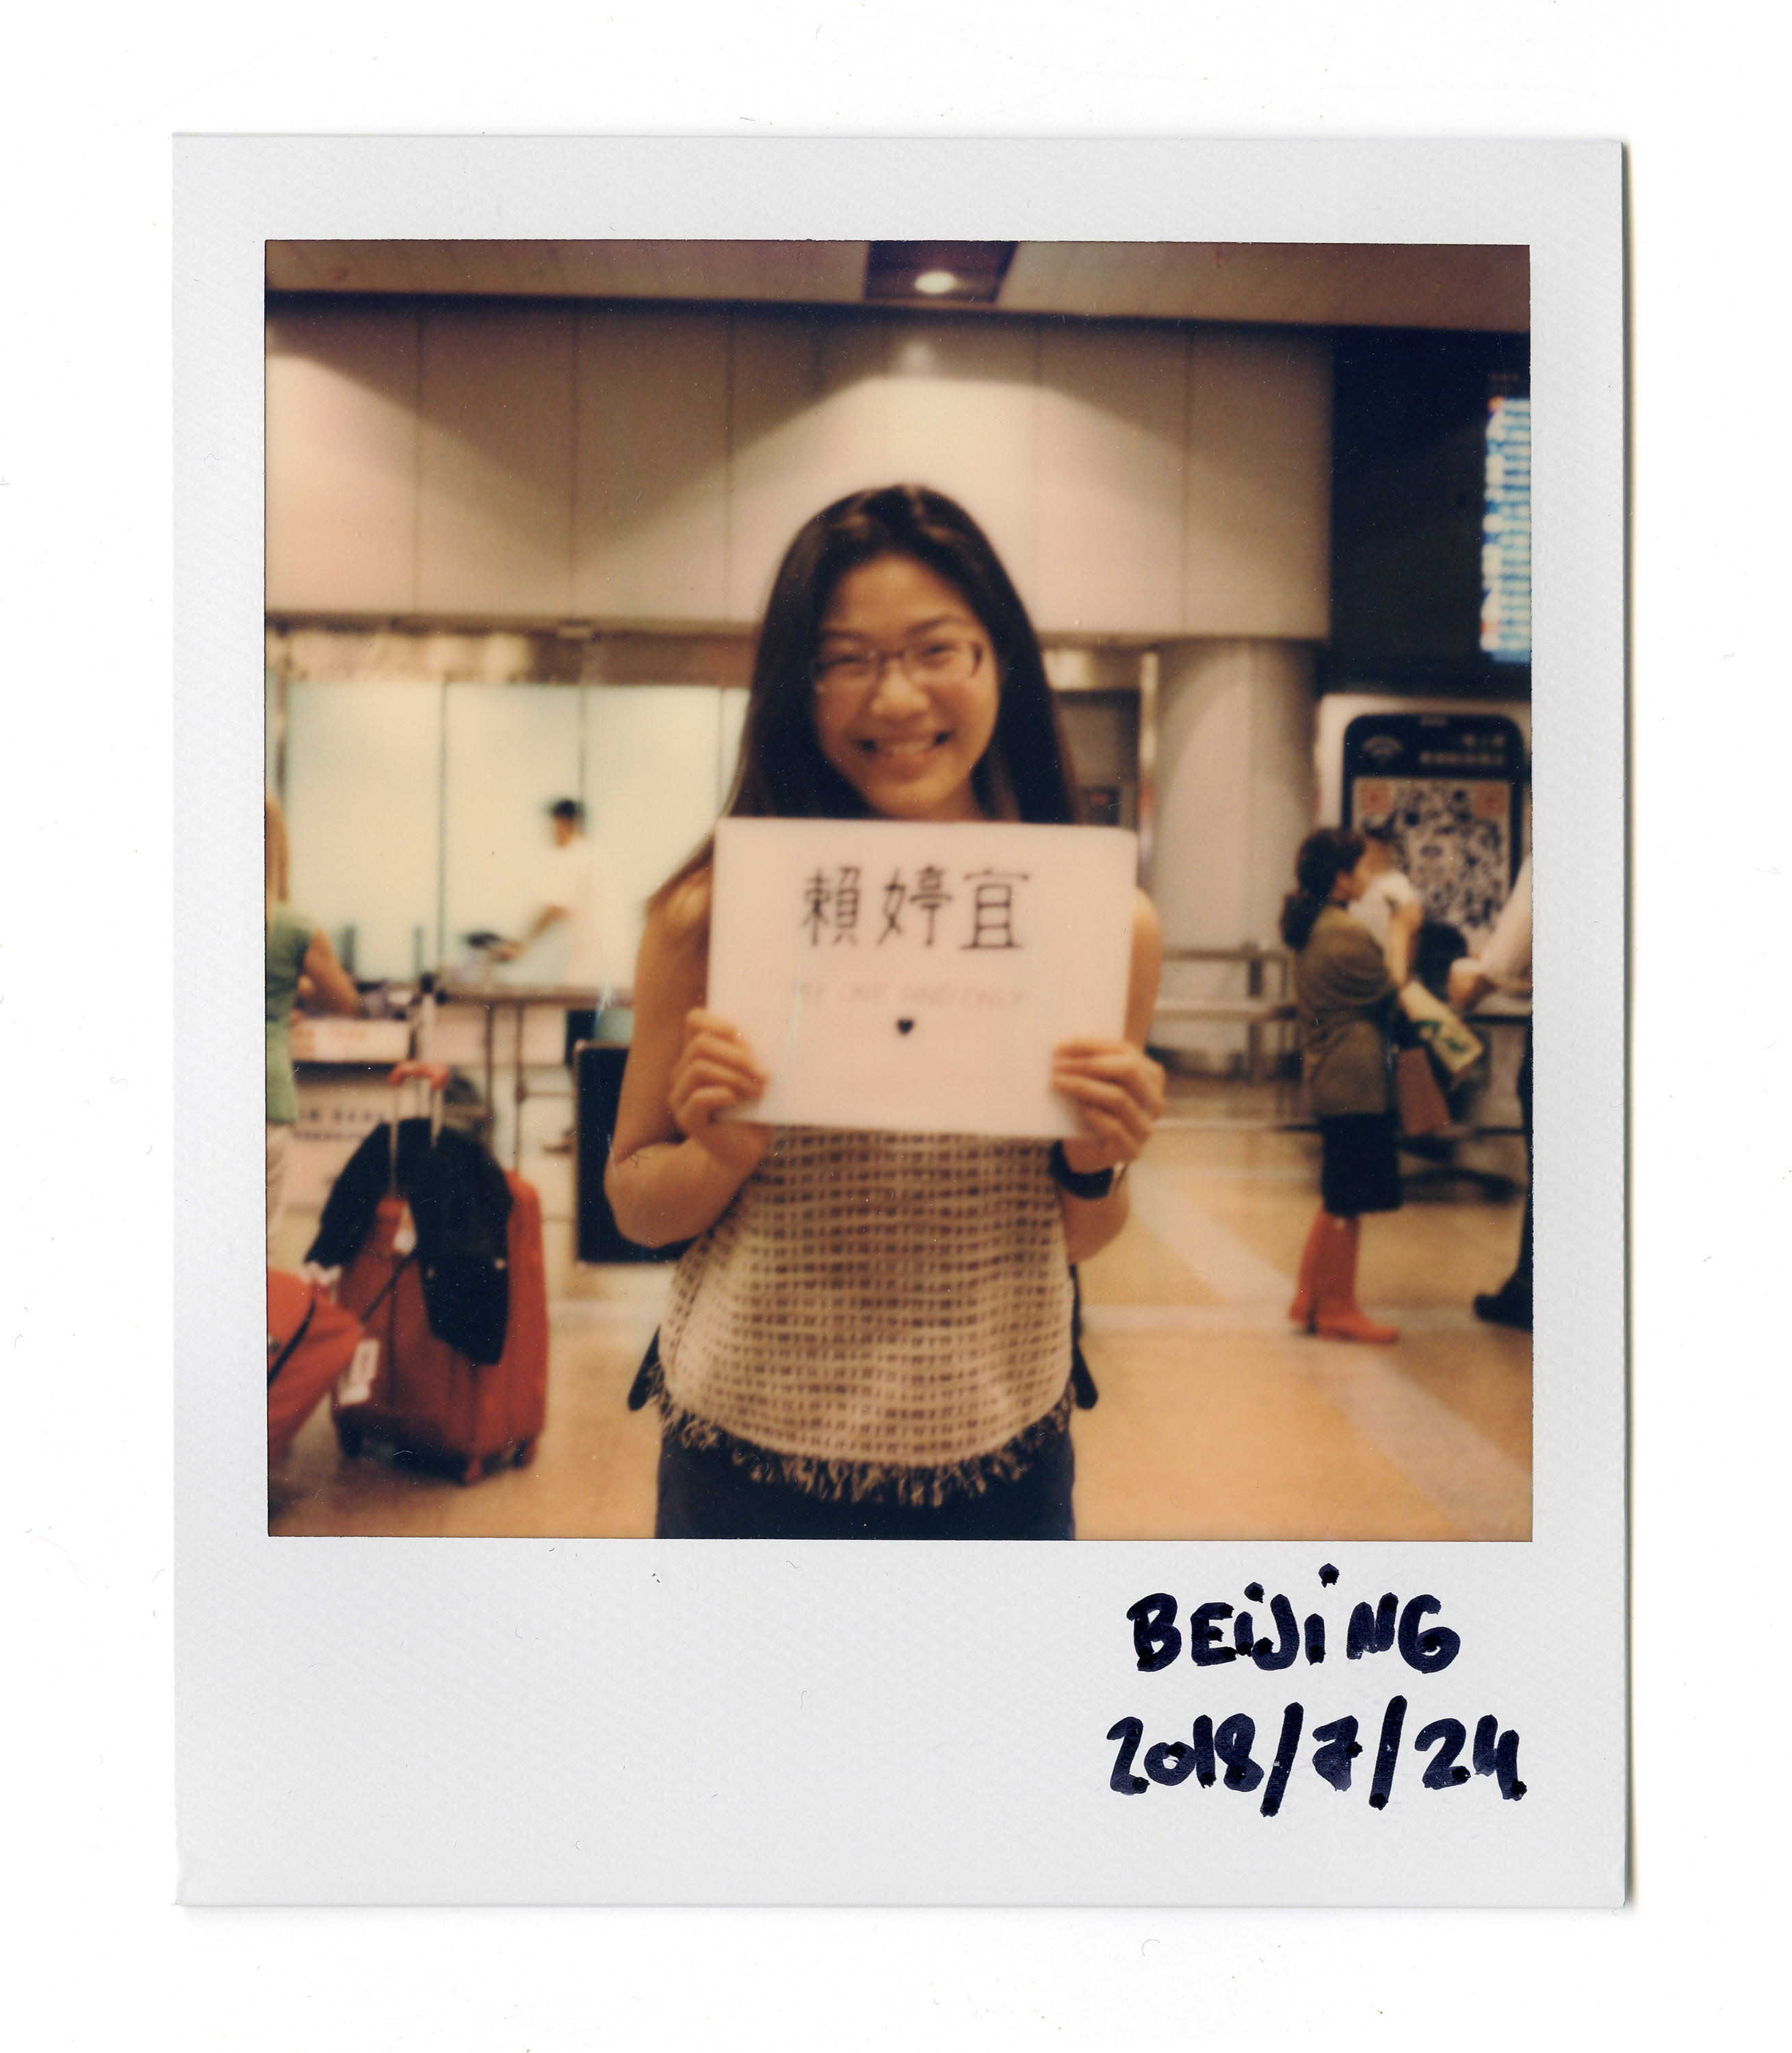 賴婷宜
MY ONE AND ONLY
♥
BEIJING
2018/7/24